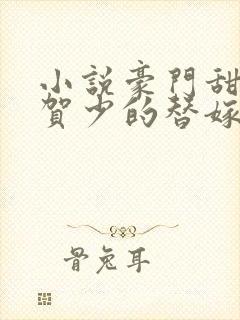 小說豪門甜
賀少的替嫁
骨兔耳